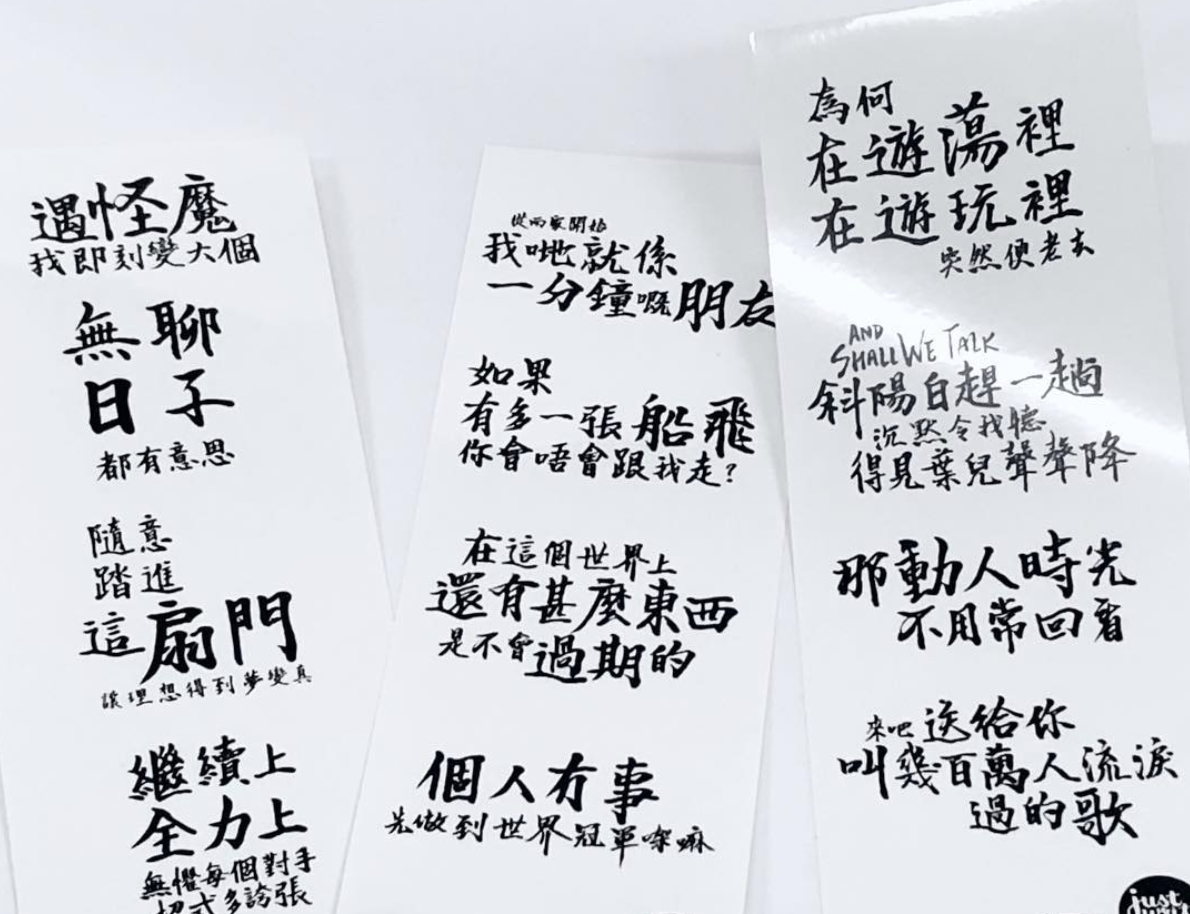 遇怪魔
我即刻變大個
無聊
日子
都有意思
隨意
踏進
這扇門
讓理想得到夢變真
繼續上
全力上
無懼每個對手
招式多誇張
從而家開始
我哋就係
一分鐘嘅朋友
如果
有多一張船飛
你會唔會跟我走?
在這個世界上
還有甚麼東西
是不會過期的
個人冇事
先做到世界冠軍㗎嘛
為何
在遊蕩裡
在遊玩裡
突然便老去
AND
SHALL WE TALK
斜陽白趕一趟
沉默令我聽
得見葉兒聲聲降
那動人時光
不用常回看
來吧送給你
叫幾百萬人流淚
過的歌
just